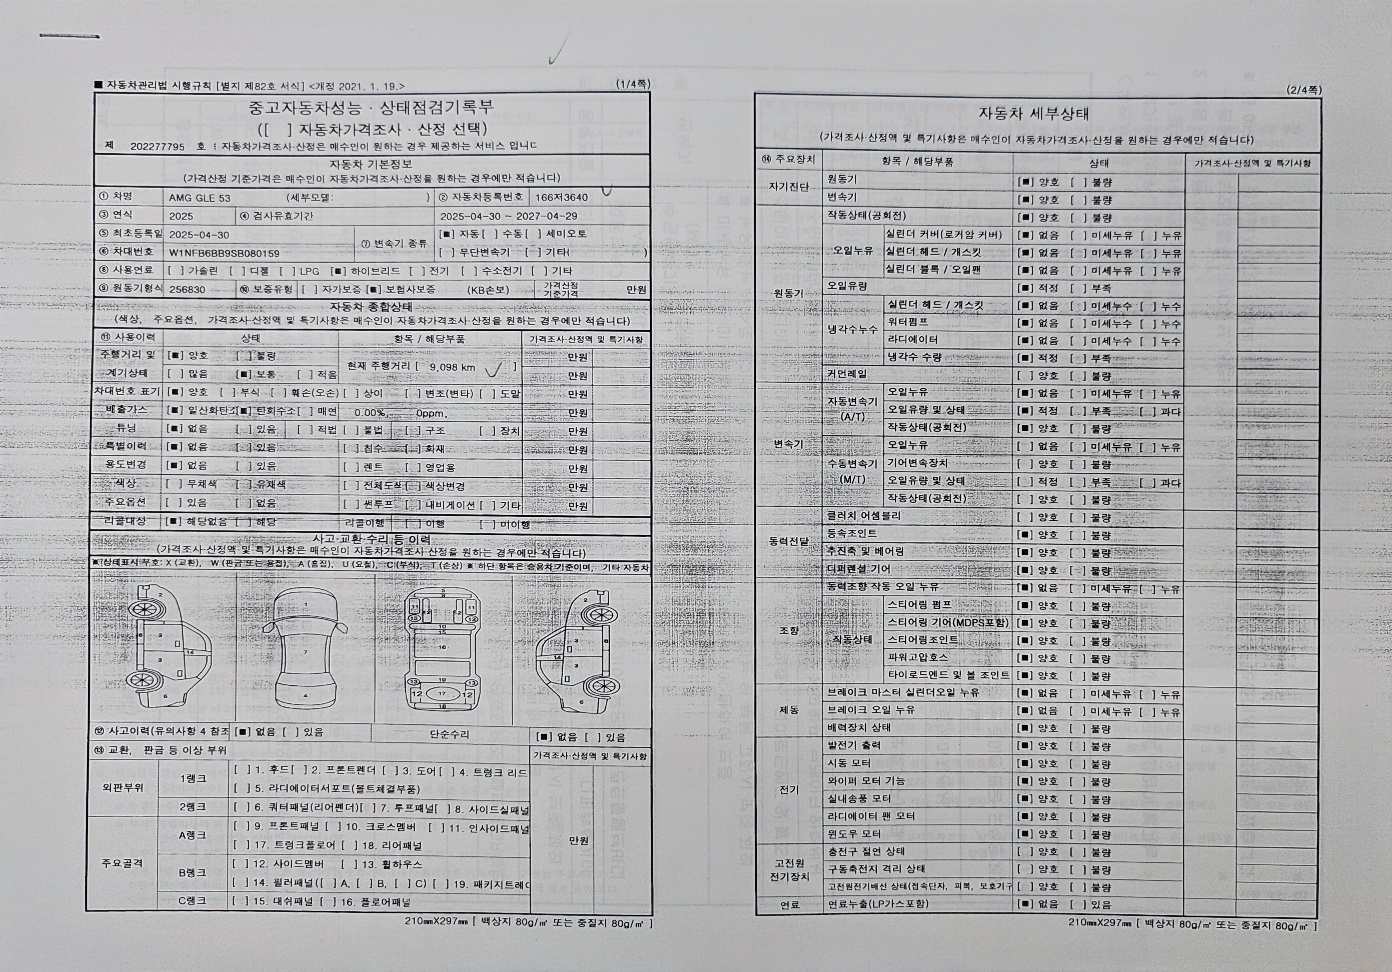 ■ 자동차관리법 시행규칙 [별지 제82호 서식] <개정 2021. 1. 19.> (1/4쪽)
중고자동차성능 · 상태점검기록부
([ ] 자동차가격조사 · 산정 선택)
제 202277795 호 : 자동차가격조사·산정은 매수인이 원하는 경우 제공하는 서비스 입니다
자동차 기본정보
(가격산정 기준가격은 매수인이 자동차가격조사·산정을 원하는 경우에만 적습니다)
① 차명 AMG GLE 53 (세부모델: ) ② 자동차등록번호 166저3640
③ 연식 2025 ④ 검사유효기간 2025-04-30 ~ 2027-04-29
⑤ 최초등록일 2025-04-30 ⑦ 변속기 종류 [■] 자동 [ ] 수동 [ ] 세미오토
⑥ 차대번호 W1NFB6BB9SB080159 [ ] 무단변속기 [ ] 기타( )
⑧ 사용연료 [ ] 가솔린 [ ] 디젤 [ ] LPG [■] 하이브리드 [ ] 전기 [ ] 수소전기 [ ] 기타
⑨ 원동기형식 256830 ⑩ 보증유형 [ ] 자가보증 [■] 보험사보증 (KB손보) 가격산정 기준가격 만원
자동차 종합상태
(색상, 주요옵션, 가격조사·산정액 및 특기사항은 매수인이 자동차가격조사·산정을 원하는 경우에만 적습니다)
⑪ 사용이력 상태 항목 / 해당부품 가격조사·산정액 및 특기사항
주행거리 및 [■] 양호 [ ] 불량 현재 주행거리 [ 9,098 km ] 만원
계기상태 [ ] 많음 [■] 보통 [ ] 적음 만원
차대번호 표기 [■] 양호 [ ] 부식 [ ] 훼손(오손) [ ] 상이 [ ] 변조(변타) [ ] 도말 만원
배출가스 [■] 일산화탄소 [■] 탄화수소 [ ] 매연 0.00%, 0ppm, 만원
튜닝 [■] 없음 [ ] 있음 [ ] 적법 [ ] 불법 [ ] 구조 [ ] 장치 만원
특별이력 [■] 없음 [ ] 있음 [ ] 침수 [ ] 화재 만원
용도변경 [■] 없음 [ ] 있음 [ ] 렌트 [ ] 영업용 만원
색상 [ ] 무채색 [ ] 유채색 [ ] 전체도색 [ ] 색상변경 만원
주요옵션 [ ] 있음 [ ] 없음 [ ] 썬루프 [ ] 내비게이션 [ ] 기타 만원
리콜대상 [■] 해당없음 [ ] 해당 리콜이행 [ ] 이행 [ ] 미이행
사고·교환·수리 등 이력
(가격조사·산정액 및 특기사항은 매수인이 자동차가격조사·산정을 원하는 경우에만 적습니다)
※ 상태표시 부호: X (교환), W (판금 또는 용접), A (흠집), U (요철), C (부식), T (손상) ※ 하단 항목은 승용차 기준이며, 기타 자동차
⑫ 사고이력(유의사항 4 참조 [■] 없음 [ ] 있음 단순수리 [■] 없음 [ ] 있음
⑬ 교환, 판금 등 이상 부위 가격조사·산정액 및 특기사항
외판부위 1랭크 [ ] 1. 후드 [ ] 2. 프론트펜더 [ ] 3. 도어 [ ] 4. 트렁크 리드
[ ] 5. 라디에이터서포트(볼트체결부품)
2랭크 [ ] 6. 쿼터패널(리어펜더) [ ] 7. 루프패널 [ ] 8. 사이드실패널
주요골격 A랭크 [ ] 9. 프론트패널 [ ] 10. 크로스멤버 [ ] 11. 인사이드패널 만원
[ ] 17. 트렁크플로어 [ ] 18. 리어패널
B랭크 [ ] 12. 사이드멤버 [ ] 13. 휠하우스
[ ] 14. 필러패널([ ] A, [ ] B, [ ] C) [ ] 19. 패키지트레이
C랭크 [ ] 15. 대쉬패널 [ ] 16. 플로어패널
210㎜X297㎜ [ 백상지 80g/㎡ 또는 중질지 80g/㎡ ]
(2/4쪽)
자동차 세부상태
(가격조사·산정액 및 특기사항은 매수인이 자동차가격조사·산정을 원하는 경우에만 적습니다)
⑭ 주요장치 항목 / 해당부품 상태 가격조사·산정액 및 특기사항
자기진단 원동기 [■] 양호 [ ] 불량
변속기 [■] 양호 [ ] 불량
원동기 작동상태(공회전) [■] 양호 [ ] 불량
오일누유 실린더 커버(로커암 커버) [■] 없음 [ ] 미세누유 [ ] 누유
실린더 헤드 / 개스킷 [■] 없음 [ ] 미세누유 [ ] 누유
실린더 블록 / 오일팬 [■] 없음 [ ] 미세누유 [ ] 누유
오일유량 [■] 적정 [ ] 부족
냉각수누수 실린더 헤드 / 개스킷 [■] 없음 [ ] 미세누수 [ ] 누수
워터펌프 [■] 없음 [ ] 미세누수 [ ] 누수
라디에이터 [■] 없음 [ ] 미세누수 [ ] 누수
냉각수 수량 [■] 적정 [ ] 부족
커먼레일 [ ] 양호 [ ] 불량
변속기 자동변속기 (A/T) 오일누유 [■] 없음 [ ] 미세누유 [ ] 누유
오일유량 및 상태 [■] 적정 [ ] 부족 [ ] 과다
작동상태(공회전) [■] 양호 [ ] 불량
수동변속기 (M/T) 오일누유 [ ] 없음 [ ] 미세누유 [ ] 누유
기어변속장치 [ ] 양호 [ ] 불량
오일유량 및 상태 [ ] 적정 [ ] 부족 [ ] 과다
작동상태(공회전) [ ] 양호 [ ] 불량
동력전달 클러치 어셈블리 [ ] 양호 [ ] 불량
등속조인트 [■] 양호 [ ] 불량
추진축 및 베어링 [■] 양호 [ ] 불량
디퍼렌셜 기어 [■] 양호 [ ] 불량
조향 동력조향 작동 오일 누유 [■] 없음 [ ] 미세누유 [ ] 누유
작동상태 스티어링 펌프 [■] 양호 [ ] 불량
스티어링 기어(MDPS포함) [■] 양호 [ ] 불량
스티어링조인트 [■] 양호 [ ] 불량
파워고압호스 [■] 양호 [ ] 불량
타이로드엔드 및 볼 조인트 [■] 양호 [ ] 불량
제동 브레이크 마스터 실린더오일 누유 [■] 없음 [ ] 미세누유 [ ] 누유
브레이크 오일 누유 [■] 없음 [ ] 미세누유 [ ] 누유
배력장치 상태 [■] 양호 [ ] 불량
전기 발전기 출력 [■] 양호 [ ] 불량
시동 모터 [■] 양호 [ ] 불량
와이퍼 모터 기능 [■] 양호 [ ] 불량
실내송풍 모터 [■] 양호 [ ] 불량
라디에이터 팬 모터 [■] 양호 [ ] 불량
윈도우 모터 [■] 양호 [ ] 불량
고전원 전기장치 충전구 절연 상태 [ ] 양호 [ ] 불량
구동축전지 격리 상태 [ ] 양호 [ ] 불량
고전원전기배선 상태(접속단자, 피복, 보호기구 [ ] 양호 [ ] 불량
연료 연료누출(LP가스포함) [■] 없음 [ ] 있음
210㎜X297㎜ [ 백상지 80g/㎡ 또는 중질지 80g/㎡ ]